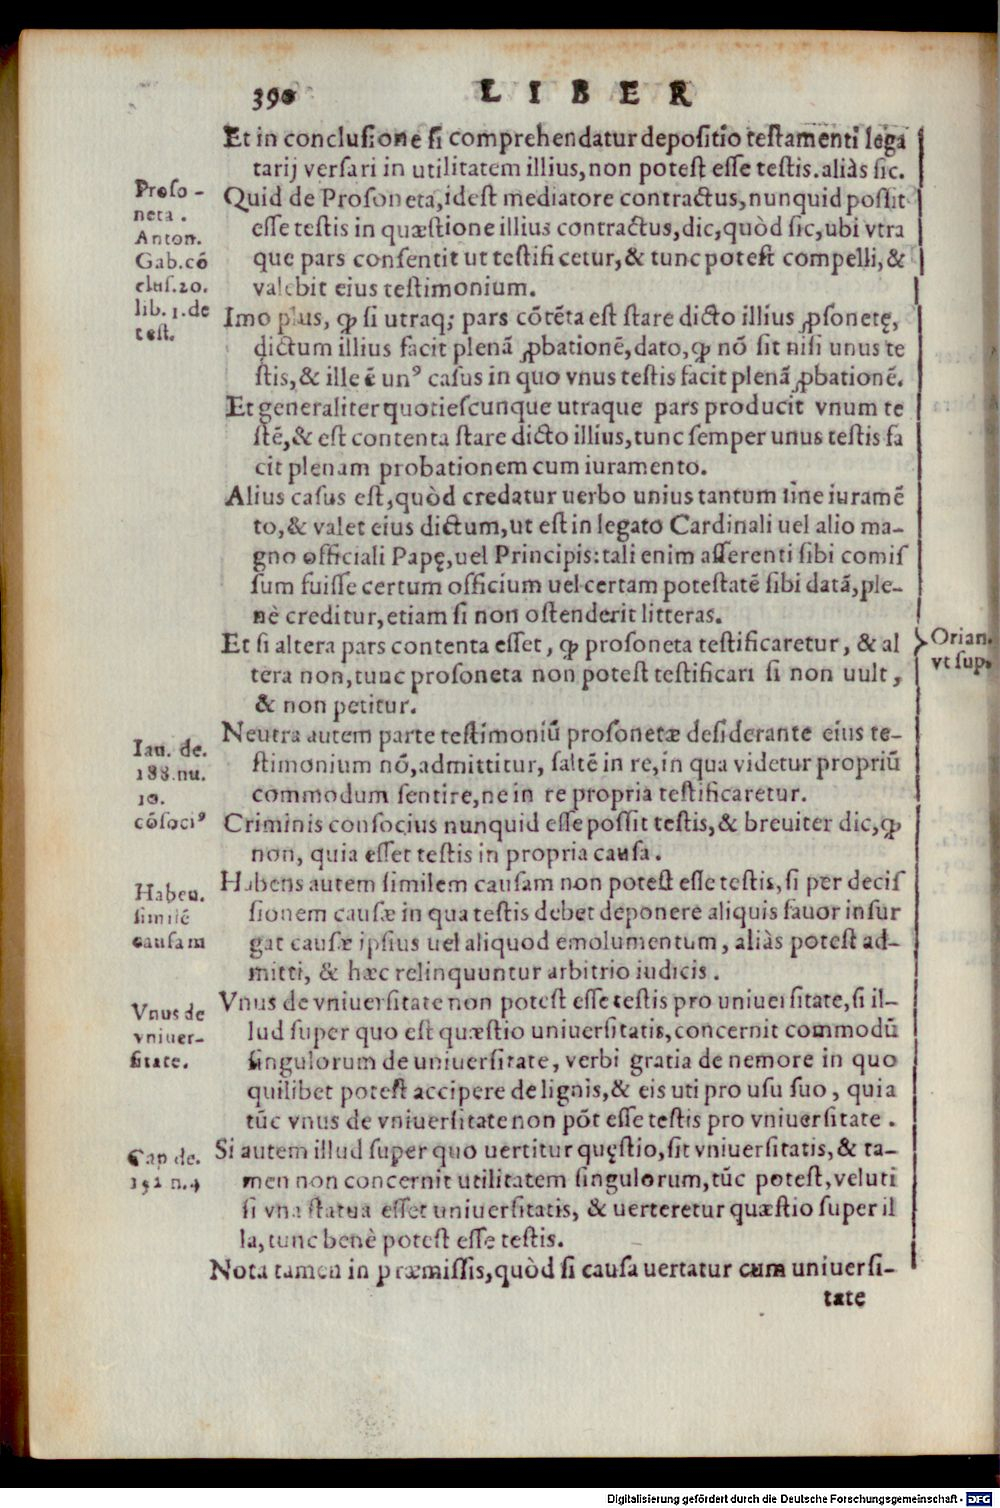 390 LIBER
Et in conclusione si comprehendatur depositio testamenti lega
tarij versari in utilitatem illius, non potest esse testis. aliàs sic.
Proso-
neta.
Anton.
Gab. cō
clus. 20.
lib. 1. de
test.
Quid de Prosoneta, idest mediatore contractus, nunquid possit
esse testis in quæstione illius contractus, dic, quòd sic, ubi vtra
que pars consentit ut testificetur, & tunc potest compelli, &
valebit eius testimonium.
Imo plus, ꝙ si utraq; pars cōtēta est stare dicto illius ꝓsonetę,
dictum illius facit plenā ꝓbationē, dato, ꝙ nō sit nisi unus te
stis, & ille ē unꝰ casus in quo vnus testis facit plenā ꝓbationē.
Et generaliter quotiescunque utraque pars producit vnum te
stē, & est contenta stare dicto illius, tunc semper unus testis fa
cit plenam probationem cum iuramento.
Alius casus est, quòd credatur uerbo unius tantum sine iuramē
to, & valet eius dictum, ut est in legato Cardinali uel alio ma-
gno officiali Papę, uel Principis: tali enim asserenti sibi comis
sum fuisse certum officium uel certam potestatē sibi datā, ple-
nè creditur, etiam si non ostenderit litteras.
Et si altera pars contenta esset, ꝙ prosoneta testificaretur, & al
tera non, tunc prosoneta non potest testificari si non uult,
& non petitur.
Orian.
vt sup.
Neutra autem parte testimoniū prosonetæ desiderante eius te-
stimonium nō, admittitur, saltē in re, in qua videtur propriū
commodum sentire, ne in re propria testificaretur.
Iau. de.
188. nu.
10.
cōsociꝰ
Criminis consocius nunquid esse possit testis, & breuiter dic, ꝙ
non, quia esset testis in propria causa.
Haben.
similē
causam
Habens autem similem causam non potest esse testis, si per decis
sionem causæ in qua testis debet deponere aliquis fauor insur
gat causæ ipsius uel aliquod emolumentum, aliàs potest ad-
mitti, & hæc relinquuntur arbitrio iudicis.
Vnus de
vniuer-
sitate.
Vnus de vniuersitate non potest esse testis pro uniuersitate, si il-
lud super quo est quæstio uniuersitatis, concernit commodū
singulorum de uniuersitate, verbi gratia de nemore in quo
quilibet potest accipere de lignis, & eis uti pro usu suo, quia
tūc vnus de vniuersitate non pōt esse testis pro vniuersitate.
Cap de.
152 n. 4
Si autem illud super quo uertitur quęstio, sit vniuersitatis, & ta-
men non concernit utilitatem singulorum, tūc potest, veluti
si vna statua esset uniuersitatis, & uerteretur quæstio super il
la, tunc benè potest esse testis.
Nota tamen in præmissis, quòd si causa uertatur cum uniuersi-
tate
Digitalisierung gefördert durch die Deutsche Forschungsgemeinschaft - DFG